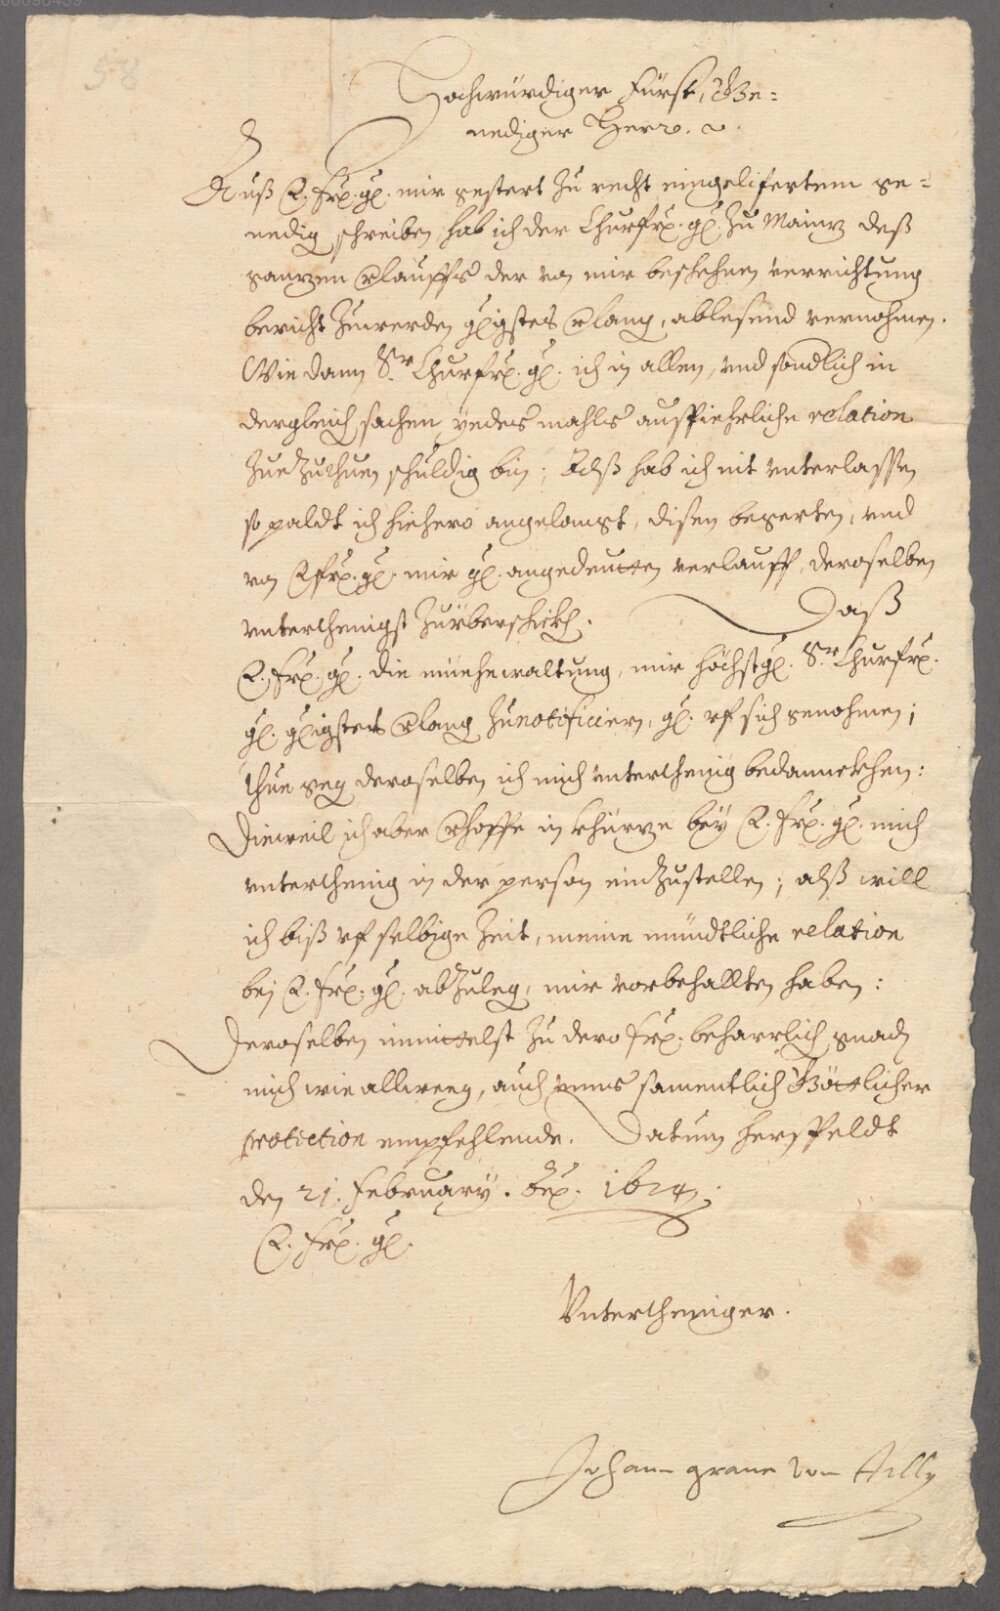 58
Hochwürdiger Fürst, Ge=
nediger Herr. 
Auß E. frl. gl. mir gestert zu recht eingelifertem ge=
nedig schreiben hab ich der Churfrl. gl. zu Mainz deß
ganzen verlauffs der von mir beschehnen verrichtung
bericht zuwerden verlang, ablesend vernohmen.
Wie dann Sr. Churfrl. gl. ich in allen, vnd sondlich in
dergleich sachen yedes mahls ausfiehrliche relation
zuezuthuen schuldig bin; Alß hab ich nit vnterlassen
so paldt ich hiehero angelangt, disen begerten, vnd
von E frl. gl. mir gl. angedeutten verlauff, deroselben
vnterthenigst zuüberschickh. Daß
E. frl. gl. die müehewaltung, mir höchstgl. Sr. Churfrl.
gl. verlang zunotificiern, gl. vf sich genohmen;
thue geg deroselben ich mich vnterthenig bedannckhen:
Dieweil ich aber verhoffe in khürze bey E. frl. gl. mich
vnterthenig in der person einzustellen; alß will
ich biß vf selbige Zeit, meine mündtliche relation
bej E. frl. gl. abzuleg, mir vorbehallten haben:
Deroselben inmittelst zu dero frl. beharrlich gnad
mich wie alleweg, auch vnns samentlich Göttlicher
protection empfehlende. Datum Herßfeldt
den 21. February. 1624.
E. frl. gl.
Vntertheniger.
Johann graue von Tilly